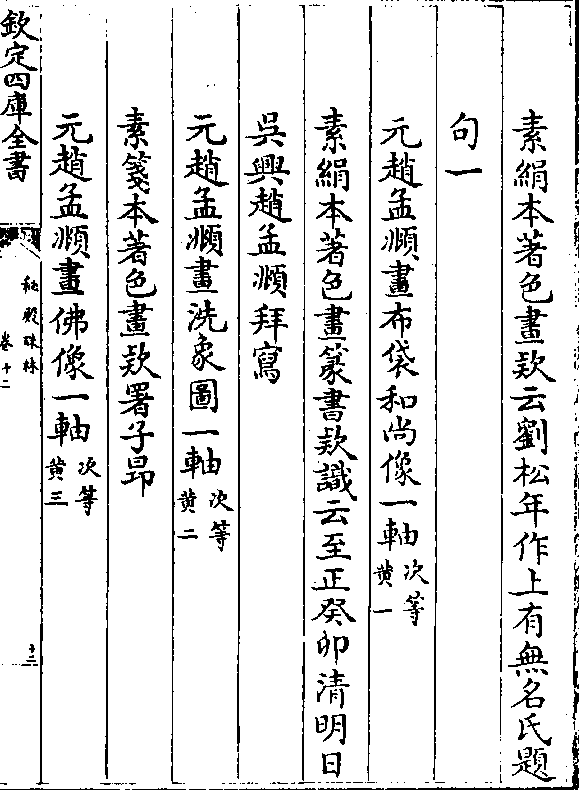 素絹本著色畫款云劉松年作上有無名氏題
句一
元趙孟頫畫布袋和尚像一軸次等黄一
素絹本著色畫篆書款識云至正癸卯清明日
吳興趙孟頫拜寫
元趙孟頫畫洗象圖一軸次等黄二
素箋本著色畫款署子昂
元趙孟頫畫佛像一軸次等黄三
欽定四庫全書
秘殿珠林
卷十二
十三